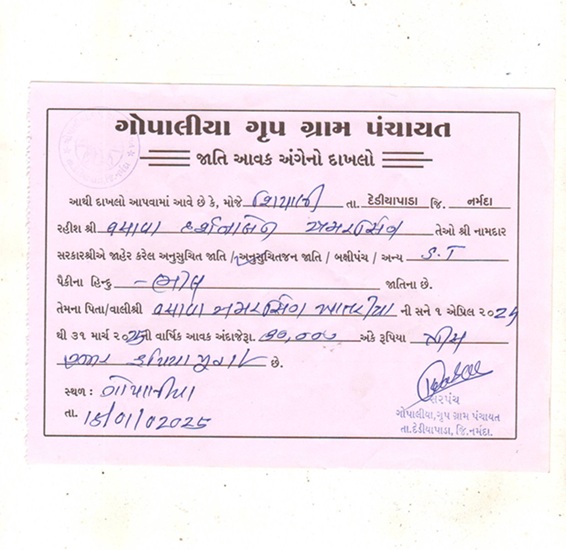 ગોપાલીયા ગૃપ ગ્રામ પંચાયત
જાતિ આવક અંગેનો દાખલો
આથી દાખલો આપવામાં આવે છે કે, મોજે તા. દેડીયાપાડા જિ. નર્મદા
રહીશ શ્રી વસાવા દર્શનાબેન અમરસિંગ તેઓ શ્રી નામદાર
સરકારશ્રીએ જાહેર કરેલ અનુસુચિત જાતિ / અનુસુચિતજન જાતિ / બક્ષીપંચ / અન્ય S.T
પૈકીના હિન્દુ - ભીલ જાતિના છે.
તેમના પિતા/વાલીશ્રી વસાવા અમરસિંગ ની સને ૧ એપ્રિલ ૨૦24
થી ૩૧ માર્ચ ૨૦25 નો વાર્ષિક આવક અંદાજેરૂા. ૩૦,૦૦૦ અંકે રૂપિયા ત્રીસ
હજાર રૂપિયા પુરા છે.
સ્થળ : ગોપાલીયા
તા. 15/01/02025
સરપંચ
ગોપાલીયા,ગૃપ ગ્રામ પંચાયત
તા.દેડીયાપાડા, જિ.નર્મદા.